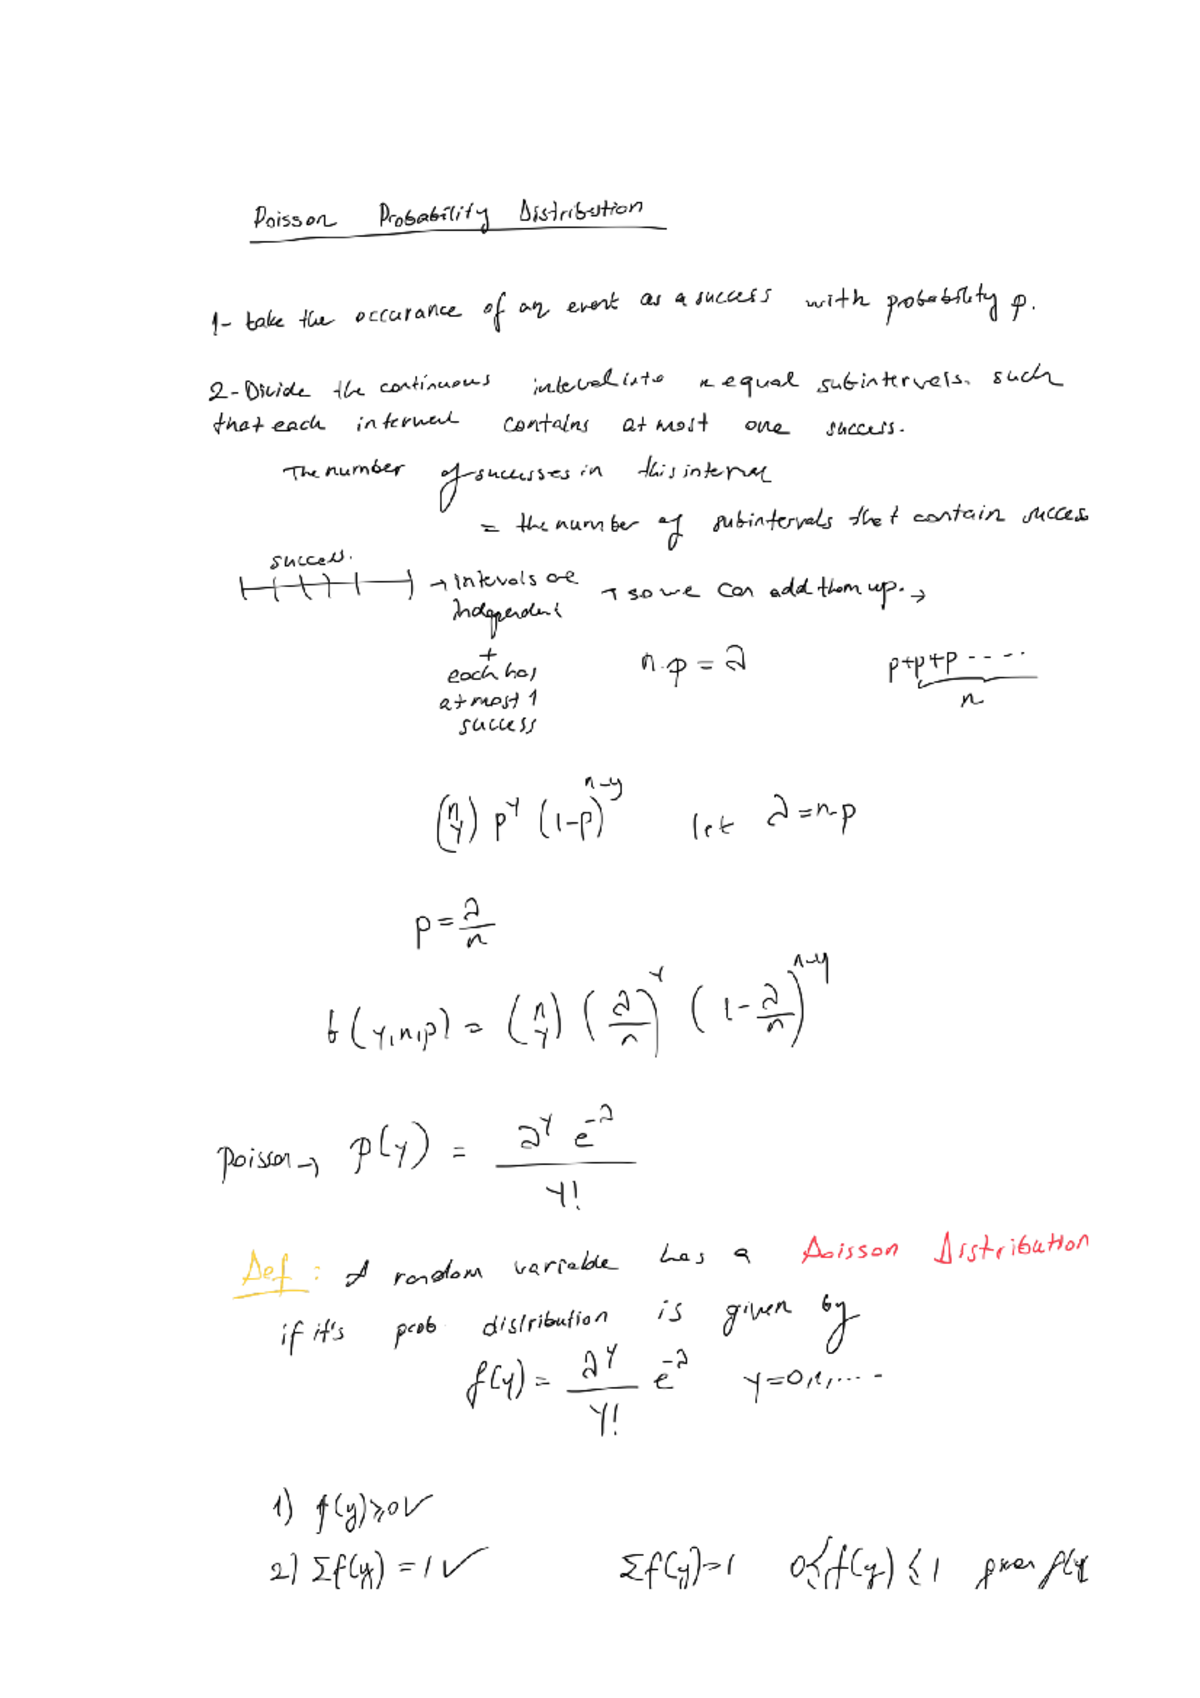 Poisson Probability Distribution
1- take the occurance of an event as a success with probability p.
2- Divide the continuous interval into n equal subintervels. such
that each interval contains at most one success.
The number of successes in this interval
= the number of subintervals that contain success
success.
→ intervals are independent → so we can add them up. →
+
each has
at most 1
success
n.p = λ
p+p+p .....
n
(n y) p^y (1-p)^{n-y} let λ = n.p
p = λ/n
b(y,n,p) = (n y) (λ/n)^y (1 - λ/n)^{n-y}
Poisson → p(y) = λ^y e^{-λ} / y!
Def : A random variable has a Poisson Distribution
if it's prob. distribution is given by
f(y) = λ^y / y! e^{-λ} y=0,1,....
1) f(y) ≥ 0 ✓
2) Σf(y) = 1 ✓ Σf(y)=1 0 ≤ f(y) ≤ 1